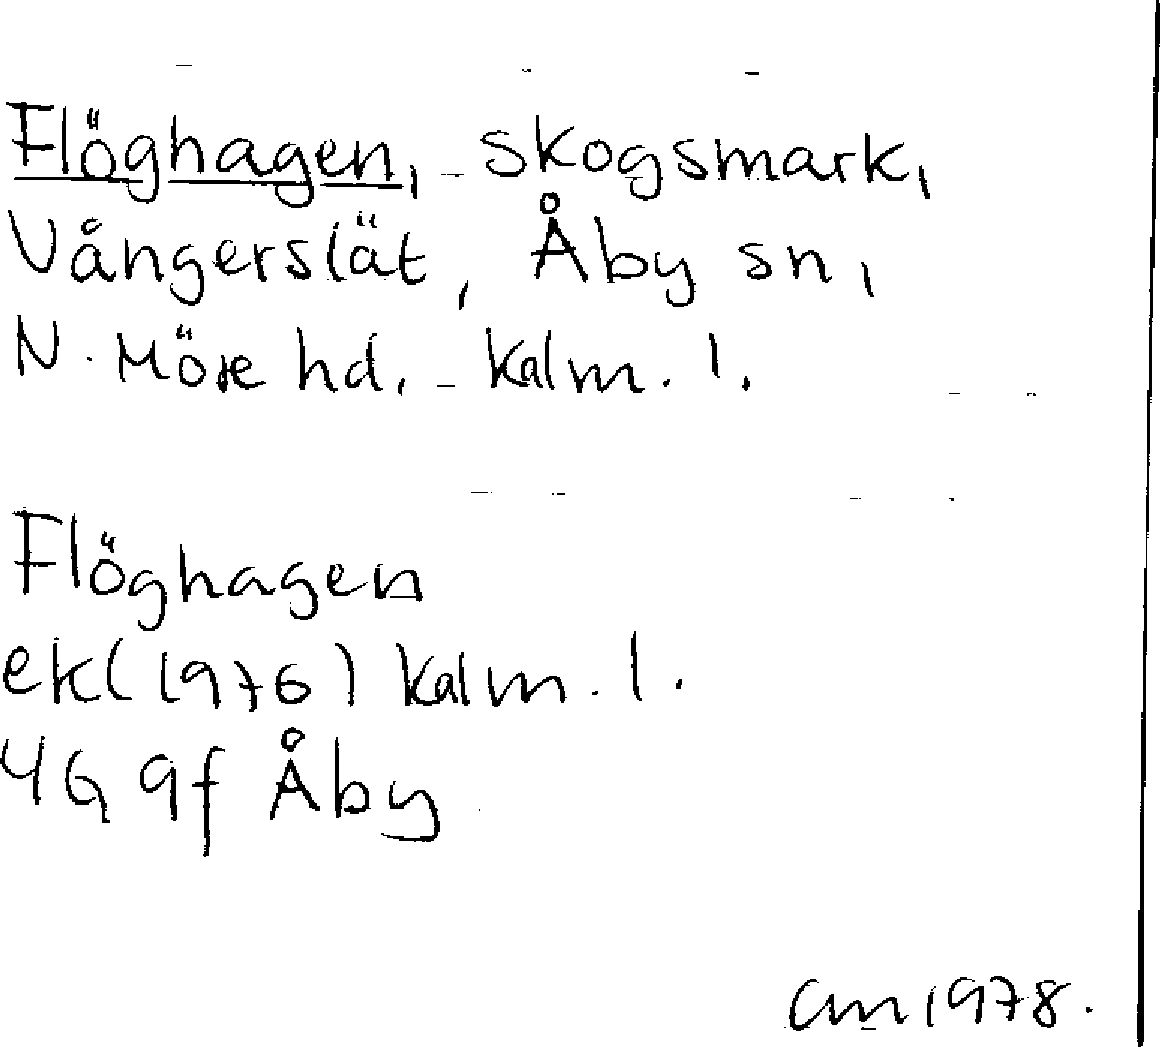 Flöghagen, skogsmark,
Vångerslät, Åby sn,
N. Möre hd, Kalm. l.
Flöghagen
ek(1976) Kalm. l.
4G 9f Åby
CM 1978.